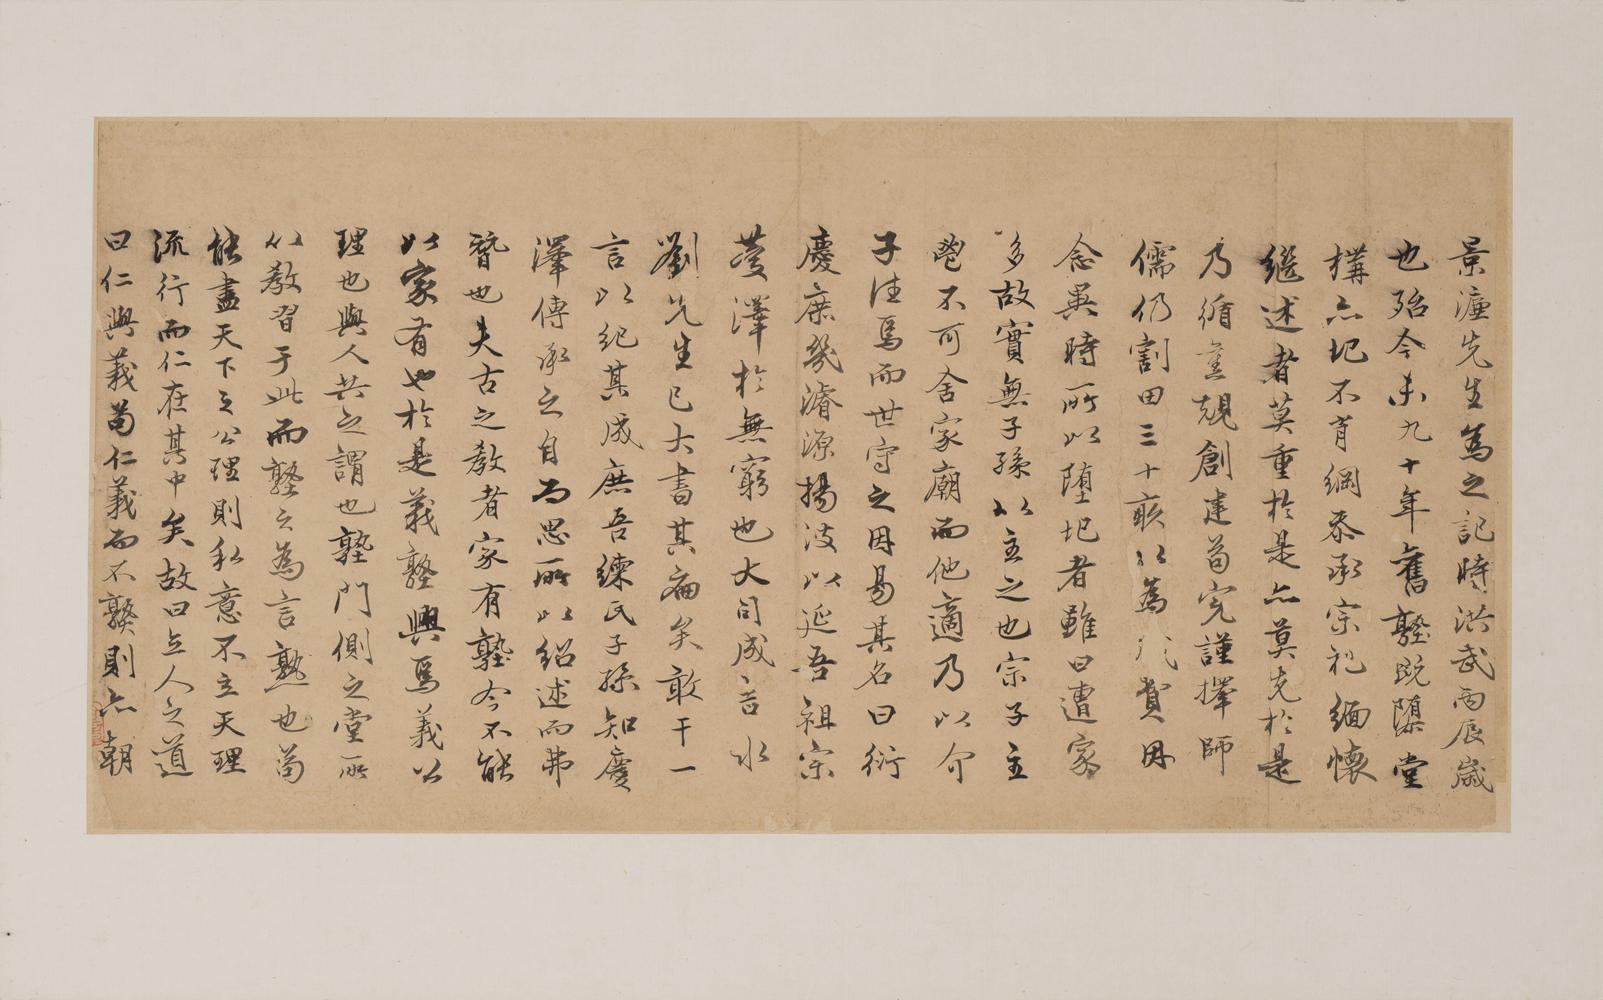 景濂先生為之記時洪武丙辰歲
也殆今未九十年舊塾既隳堂
構亦圮不肖綱忝承宗祀緬懷
繼述者莫重於是亦莫克於是
乃循舊規創建苟完謹擇師
儒仍割田三十畝以為費因
念異時所以墮圮者雖曰遭家
多故實無子孫以主之也宗子主
鬯不可舍家廟而他適乃以介
子注焉而世守之因易其名曰衍
慶庶幾濬源揚波以延吾祖宗
慶澤於無窮也大司成吉水
劉先生已大書其扁矣敢干一
言以紀其成庶吾練氏子孫知慶
澤傳承之自而思所以紹述而弗
替也夫古之教者家有塾今不能
以家有也於是義塾興焉義以
理也與人共之謂也塾門側之堂所
以教習于此而塾之為言熟也苟
能盡天下之公理則私意不立天理
流行而仁在其中矣故曰立人之道
曰仁與義苟仁義而不熟則亦朝